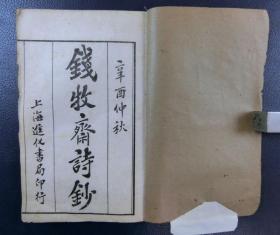 辛酉仲秋
錢牧齋詩鈔
上海進化書局印行